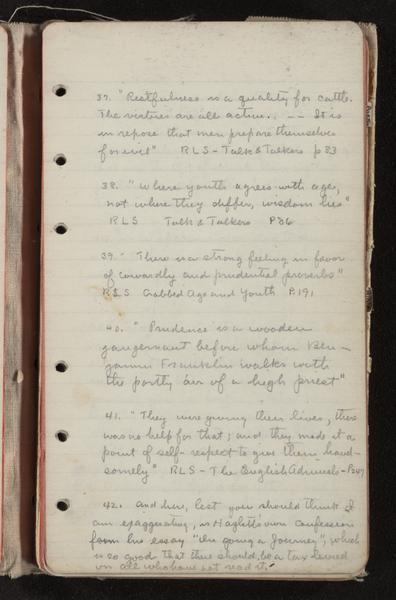 37. "Restfulness is a quality for cattle.
The virtues are all active.. -- It is
in repose that men prepare themselves
for evil" RLS - Talk & Talkers p 83
38. "Where youth agrees with age,
not where they differ, wisdom lies"
RLS Talk & Talkers P 86
39. "There is a strong feeling in favor
of cowardly and prudential proverbs"
RLS Crabbed Age and Youth P.191
40. "Prudence is a wooden
juggernaut before whom Ben-
jamin Franklin walks with
the portly air of a high priest"
41. "They were giving their lives, there
was no help for that; and they made it a
point of self-respect to give them hand-
somely" RLS - The English Admirals -
42. And here, lest you should think I
am exaggerating, is Hazlitt's own confession
from his essay "On going a Journey", which
is so good that there should be a tax levied
on all who have not read it.